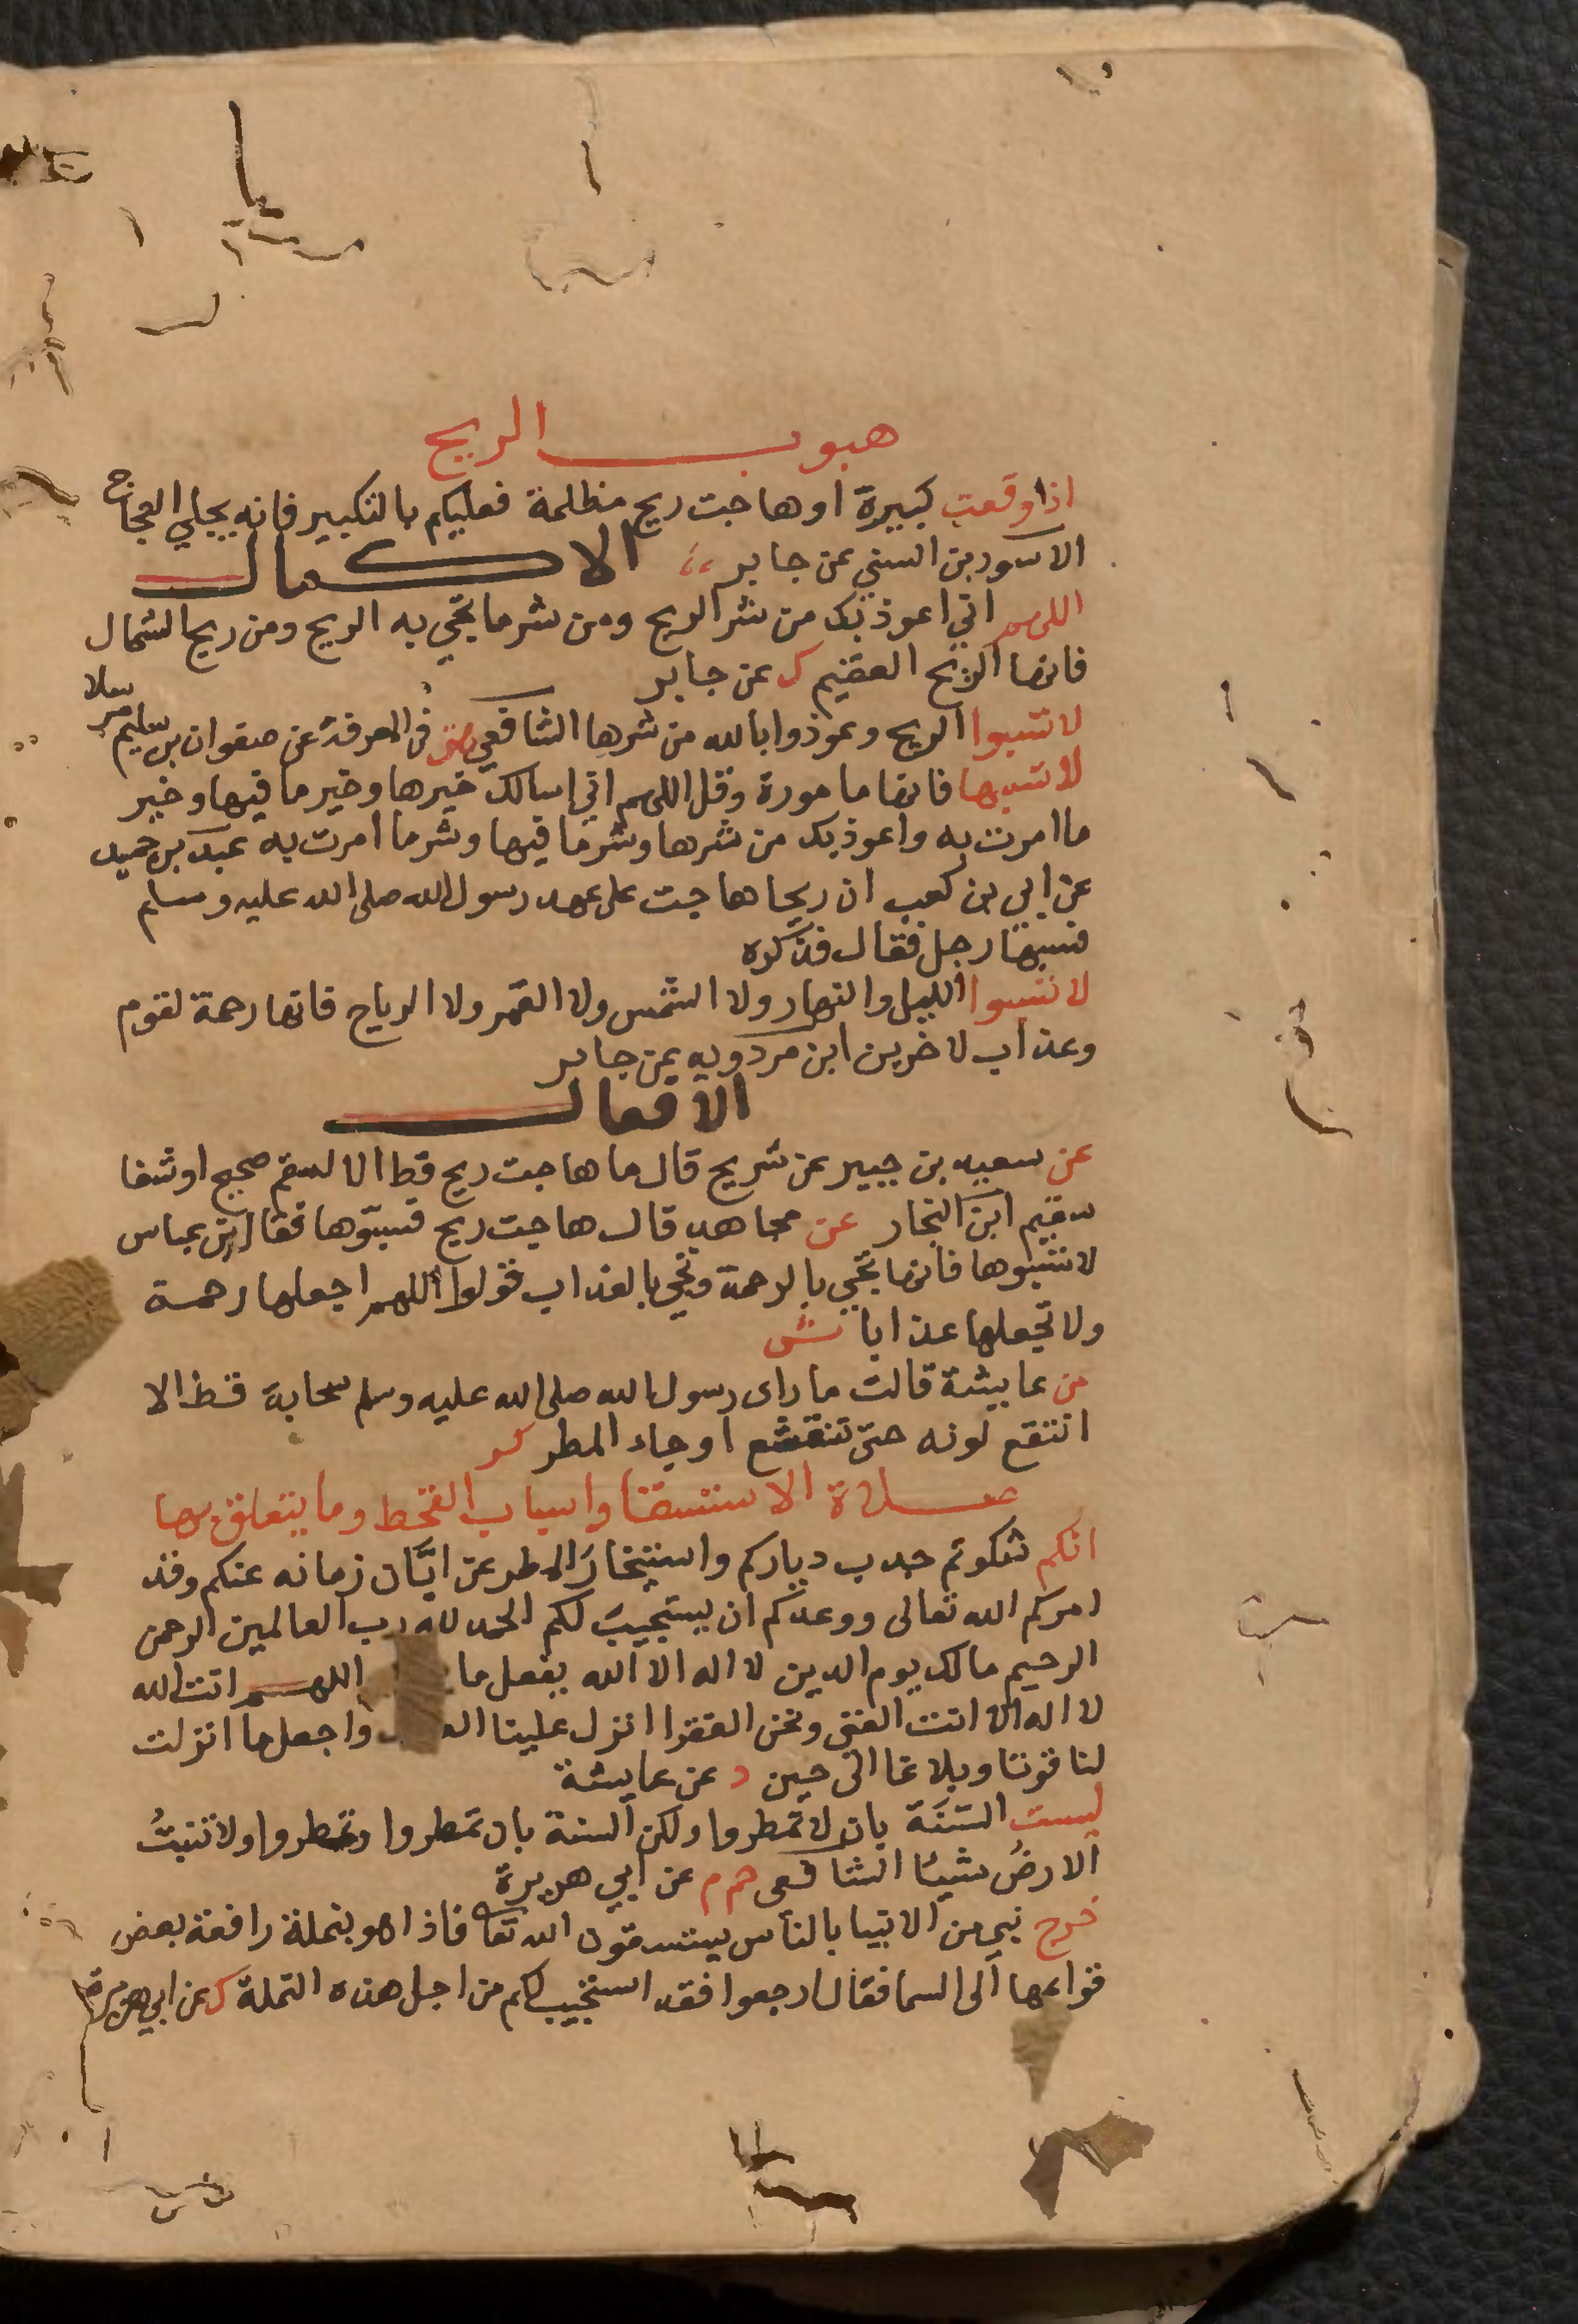 هبوب الريح
اذا وقعت كبيرة او هاجت ريح مظلمة فعليكم بالتكبير فانه يجلي العجاج
الاسود بن السني عن جابر الاكمال
اللهم اني اعوذ بك من شر الريح ومن شر ما تجي به الريح ومن ريح الشمال
فانها الريح العقيم ك عن جابر
لا تسبوا الريح وعوذوا بالله من شرها الشافعي في المعرفة عن صفوان بن سليم مرسلا
لا تسبها فانها مامورة وقل اللهم اني اسالك خيرها وخير ما فيها وخير
ما امرت به واعوذ بك من شرها وشر ما فيها وشر ما امرت به عبد بن حميد
عن ابي بن كعب ان ريحا هاجت على عهد رسول الله صلى الله عليه وسلم
فسبها رجل فقال فذكره
لا تسبوا الليل والنهار ولا الشمس ولا القمر ولا الرياح فانها رحمة لقوم
وعذاب لاخرين ابن مردويه عن جابر
الافعال
عن سعيد بن جبير عن شريح قال ما هاجت ريح قط الا لسقم صحيح او شفا
سقيم ابن النجار عن مجاهد قال هاجت ريح فسبوها فقال ابن عباس
لا تسبوها فانها تجي بالرحمة وتجي بالعذاب قولوا اللهم اجعلها رحمة
ولا تجعلها عذابا ش
عن عايشة قالت ما راى رسول الله صلى الله عليه وسلم سحابة قط الا
انتقع لونه حتى تنقشع او جاء المطر كر
صلاة الاستسقا واسباب القحط وما يتعلق بها
انكم شكوتم جدب دياركم واستيخار المطر عن ابان زمانه عنكم وقد
امركم الله تعالى ووعدكم ان يستجيب لكم الحمد لله رب العالمين الرحمن
الرحيم مالك يوم الدين لا اله الا الله يفعل ما اللهم انت الله
لا اله الا انت الغني ونحن الفقرا انزل علينا واجعل ما انزلت
لنا قوتا وبلاغا الى حين د عن عايشة
ليست السنة بان لا تمطروا ولكن السنة بان تمطروا وتمطروا ولا تنبت
الارض شيئا الشافعي حم م عن ابي هريرة
خرج نبي من الانبيا بالناس يستسقون الله تعا فاذا هو بنملة رافعة بعض
قوائمها الى السما فقال ارجعوا فقد استجيب لكم من اجل هذه النملة ك عن ابي هريرة